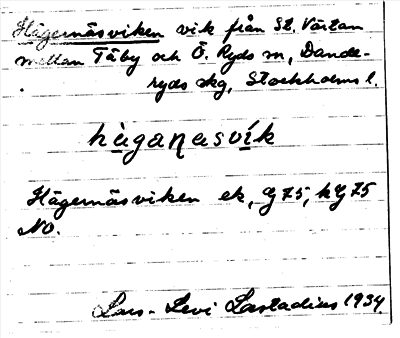 Hägernäsviken vik från St. Värtan
mellan Täby och Ö. Ryds sn, Dande-
ryds skg, Stockholms l.
hàganasvík
Hägernäsviken ek, G 75, hG 75
NO.
Lars-Levi Læstadius 1934.